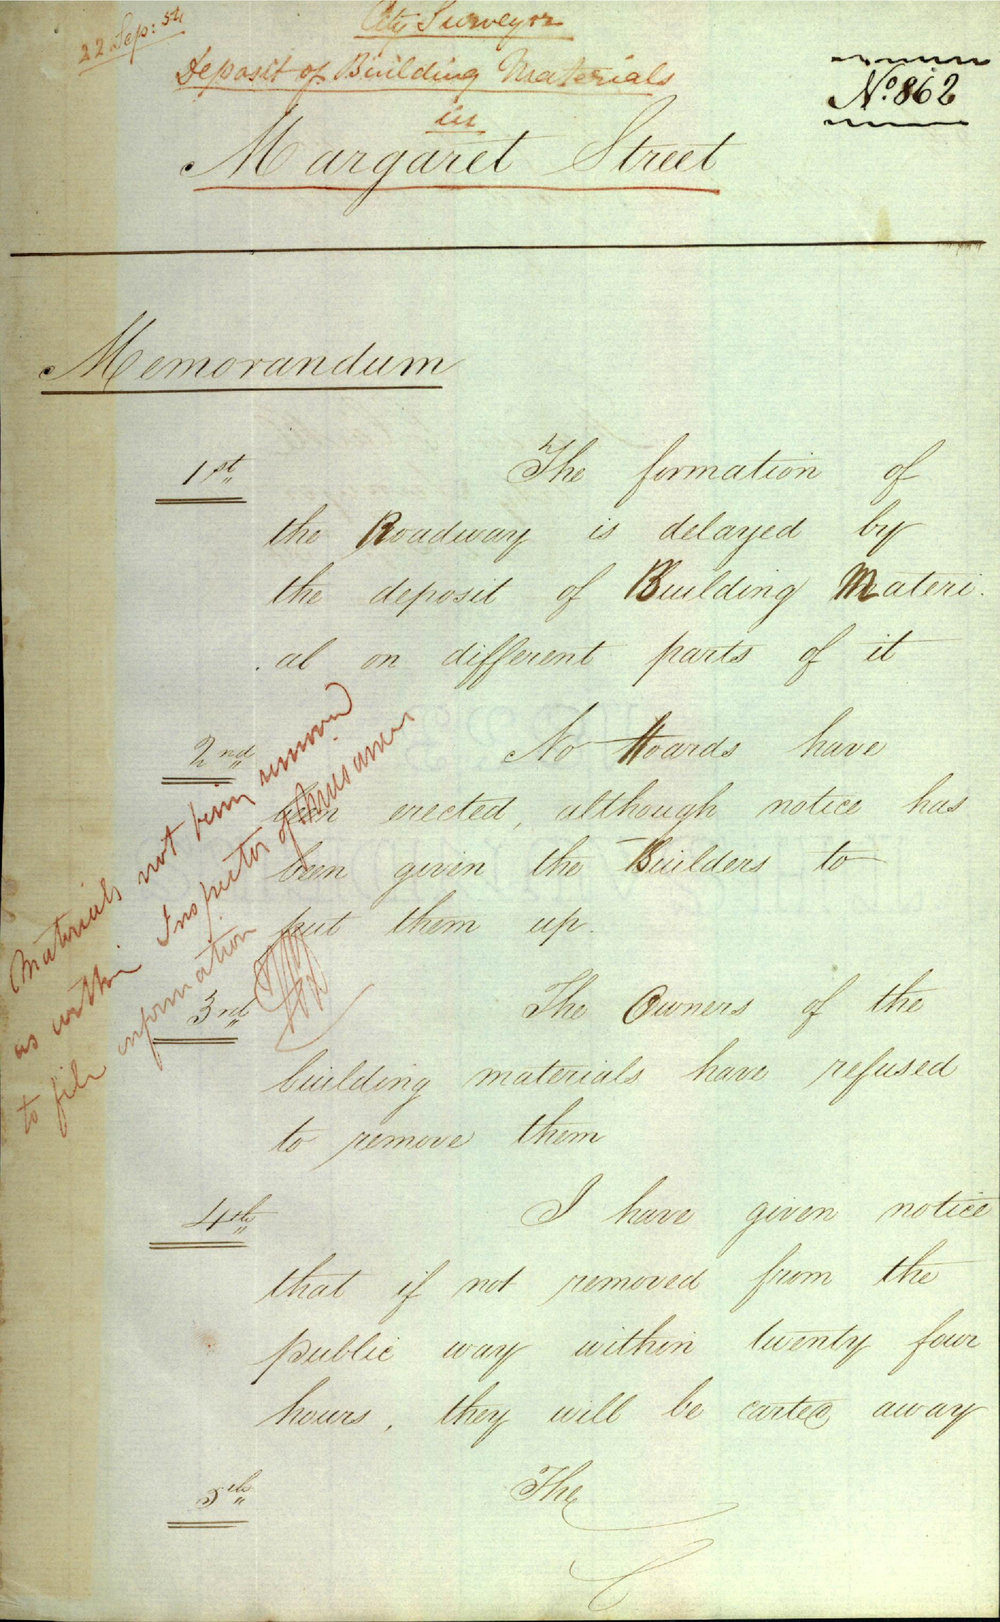 22 Sep: 54
City Surveyor
Deposit of Building Materials
in
Margaret Street
No. 862
Memorandum
1st The formation of
the Roadway is delayed by
the deposit of Building Materi
.al on different parts of it
2nd No Hoards have
been erected, although notice has
been given the Builders to
put them up.
3rd The Owners of the
building materials have refused
to remove them
4th I have given notice
that if not removed from the
public way within twenty four
hours, they will be carted away
5th The
Materials not being removed
as within Inspector of Nuisances
to file information